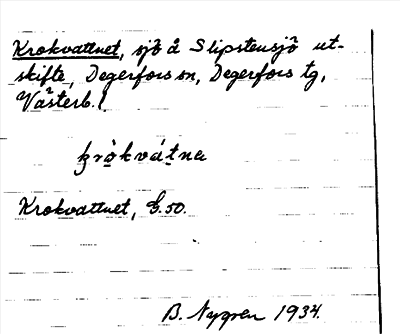 Krokvattnet, sjö å Slipstensjö ut-
skifte, Degerfors sn, Degerfors tg,
Västerb. l.
kròkvátna
Krokvattnet, G.50.
B. Nygren 1934.